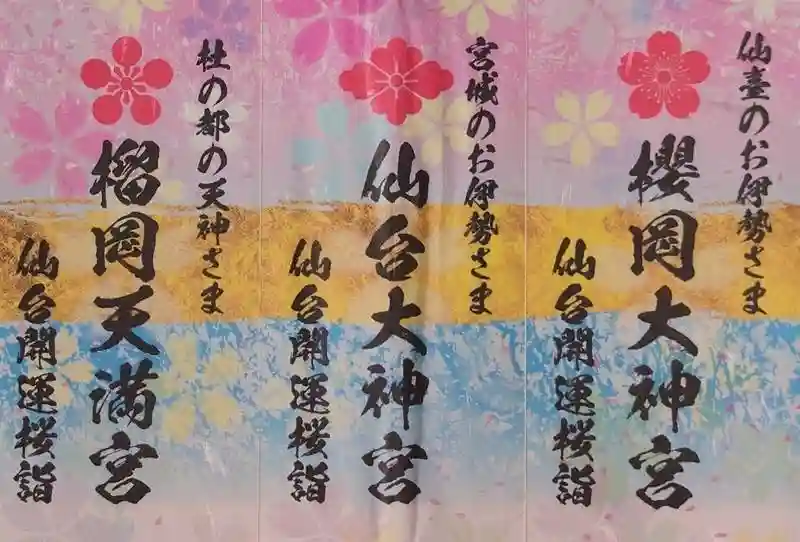 仙臺のお伊勢さま
櫻岡大神宮
仙台開運桜詣
宮城のお伊勢さま
仙台大神宮
仙台開運桜詣
杜の都の天神さま
榴岡天満宮
仙台開運桜詣